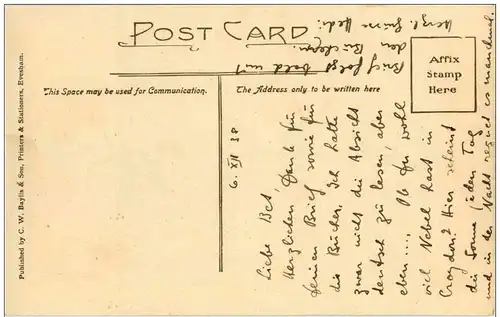 POST CARD
This Space may be used for Communication.
The Address only to be written here
Affix
Stamp
Here
Published by C. W. Baylis & Son, Printers & Stationers, Evesham.
6. XII 38
Liebe Bet,
Herzlichen Dank für
Deinen Brief sowie für
die Bücher. Ich hatte
zwar nicht die Absicht
deutsch zu lesen, aber
eben..... Ob Du wohl
viel Nebel hast in
Croydon? Hier scheint
die Sonne jeden Tag
und in der Nacht regnet es manchmal.
Brief folgt bald mit
den Büchern.
Herzl. Grüsse